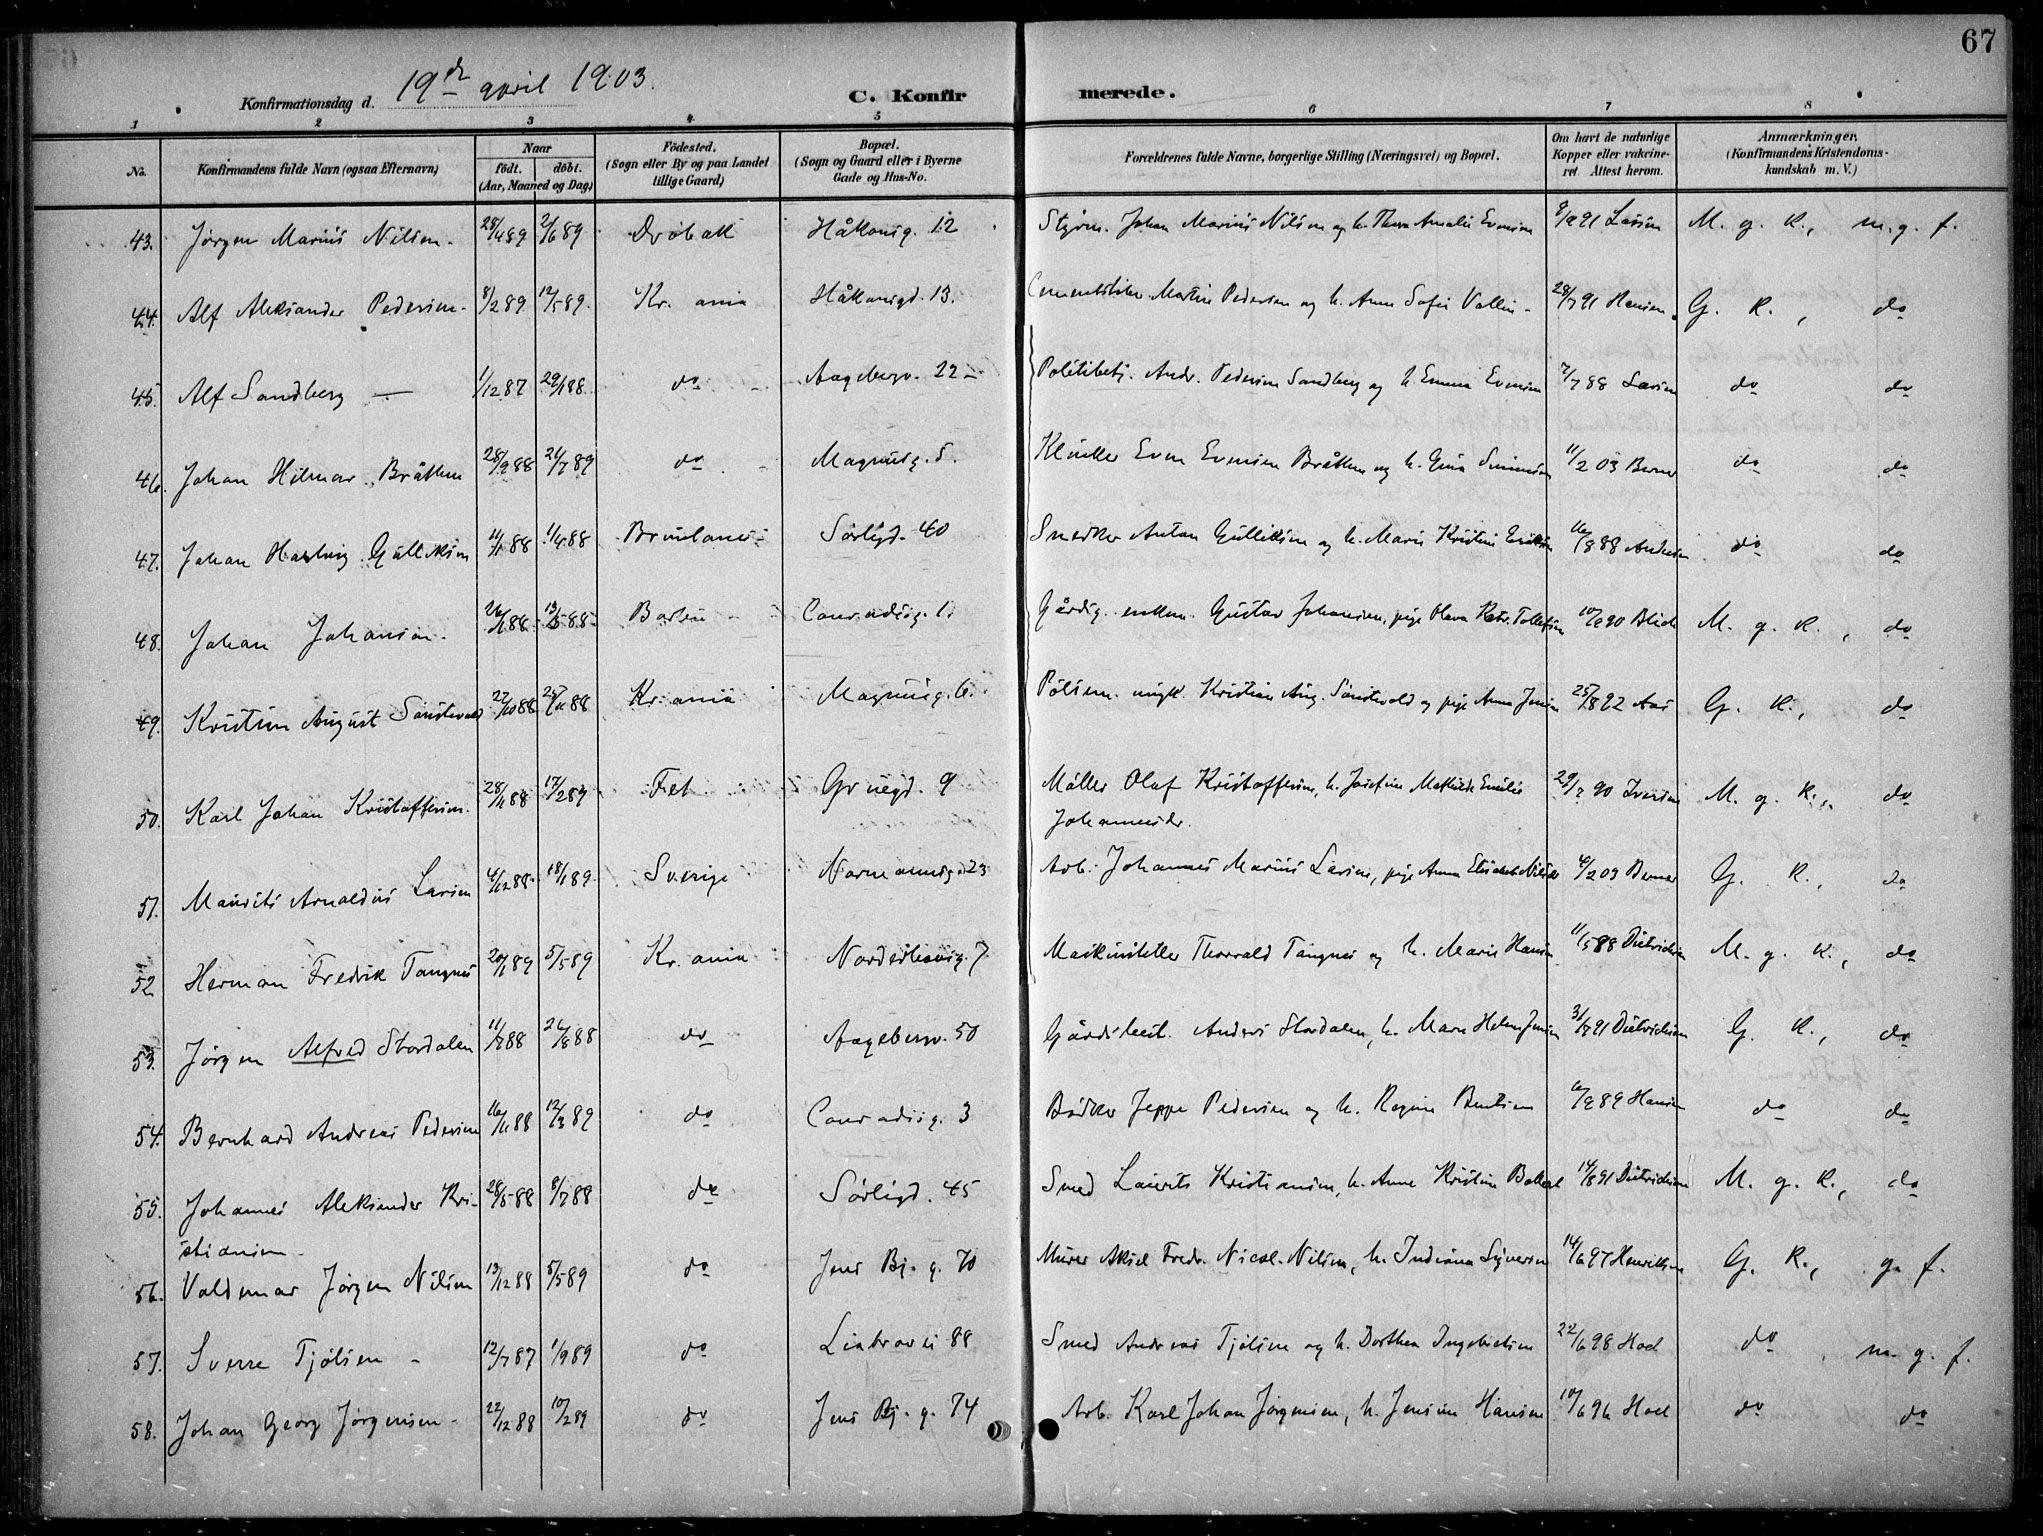 67
Konfirmationsdag d. 19de april 1903.
C. Konfirmerede.
1 2 3 4 5 6 7 8
No. Konfirmandens fulde Navn (ogsaa Efternavn) Naar födt. döbt. (Aar, Maaned og Dag) Födested. (Sogn eller By og paa Landet tillige Gaard) Bopæl. (Sogn og Gaard eller i Byerne Gade og Hus-No. Forældrenes fulde Navne, borgerlige Stilling (Næringsvei) og Bopæl. Om havt de naturlige Kopper eller vakcineret. Attest herom. Anmærkninger. (Konfirmandens Kristendomskundskab m. V.)
43. Jørgen Marius Nilsen. 28/4 89 2/6 89 Drøbak Håkonsg. 12 Styrm. Johan Marius Nilsen og h. Thora Amalie Evensen 91 Larsen M. g. K., m. g. f.
44. Alf Aleksander Pedersen. 8/2 89 12/5 89. Kr. ania Håkonsgd. 13. Martin Pedersen og h. Anna Sofie Vallin 28/7 91 Hansen. G. K., do
45. Alf Sandberg — 1/12 87 29/1 88 do Aagebergv. 22 Politibetj. Andr. Pedersen Sandberg og h. Emma Evensen 7/7 88 Larsen do do
46. Johan Hilmar Bråthen 28/9 88 21/7 89 do Magnusg. 5. Even Evensen Bråthen og h. Gina Simensen 11/2 03 Berner do do
47. Johan Hartvig Gulliksen 11/1 88 1/4 88 Brunlanes Sørligd. 40 Snedker Anton Gulliksen og h. Marie Kristine Eriksen 16/8 88 Andersen do do
48. Johan Johansen. 88 13/5 88 Conradisg. 1. Gårdsg. enkem. Gustav Johansen, pige Olava Katr. Tollefsen 90 Blich M. g. K., do
49. Kristian August Sandvold 22/10 88 88 Kr. ania Magnusg. 6. Pølsem. ungk. Kristian Aug. Sandvold og pige Anna Jensen 25/8 92 Aas G. K., do
50. Karl Johan Kristoffersen. 28/11 88 17/2 89 Fet Grüegd. 9 Møller Olaf Kristoffersen, h. Josefine Mathilde Emilie
Johannesdr. 29/ 90 Iversen M. g. K., do
51. Maurits Arnoldus Larsen 4/12 88 18/1 89. Sverige Normannsg. 23 Arb. Johannes Marius Larsen, pige Anna Elisabeth 4/2 03 Berner G. K., do
52 Herman Fredrik Tangnes 20/1 89 5/5 89 Kr. ania Nordenhovsg. 7 Thorvald Tangnes og h. Marie Hansen 11/5 88 Dietrichson M. g. K., do
53. Jørgen Alfred Stordalen 11/7 88 26/8 88 do Aagebergv. 50 Anders Stordalen, h. Maren Helene Jensen 31/7 91 Dietrichson G. K., do
54. Bernhard Andreas Pedersen 16/11 88 12/3 89 do Conradisg. 3 Bødker Jeppe Pedersen og h. Regine Bentsen 89 Hansen do do
55. Johannes Aleksander Kri- 28/5 88 8/7 88 do Sørligd. 45 Smed Laurits Kristiansen, h. Anne Kristine 14/8 91 Dietrichson M. g. K., do
stiansen.
56. Valdemar Jørgen Nilsen 13/12 88 5/5 89 do Jens Bj. g. 70 Murer Aksel Fredr. Nicol. Nilsen, h. Indiana Syversen 14/6 97 Henriksen G. K., g. f.
57. Sverre Tjølsen - 12/7 87 1/9 89 do Liabrovei 88 Smed Andreas Tjølsen og h. Dorthea Ingebretsen 22/6 98 Hoel do m. g. f.
58. Johan Georg Jørgensen - 22/12 88 10/2 89 do Jens Bj. g. 74 Arb. Karl Johan Jørgensen, h. Jensine Hansen 10/6 96 Hoel do do